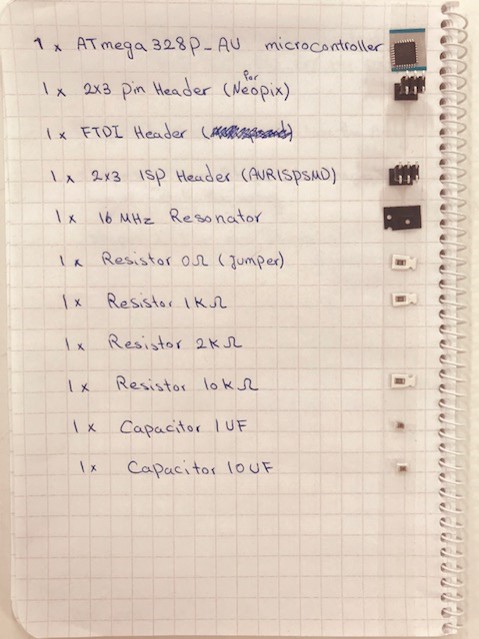 1 x ATmega328P-AU microcontroller
1 x 2x3 pin Header (for Neopix)
1 x FTDI Header (
1 x 2x3 ISP Header (AVRISPSMD)
1 x 16 MHz Resonator
1 x Resistor 0Ω (jumper)
1 x Resistor 1KΩ
1 x Resistor 2KΩ
1 x Resistor 10KΩ
1 x Capacitor 1UF
1 x Capacitor 10UF